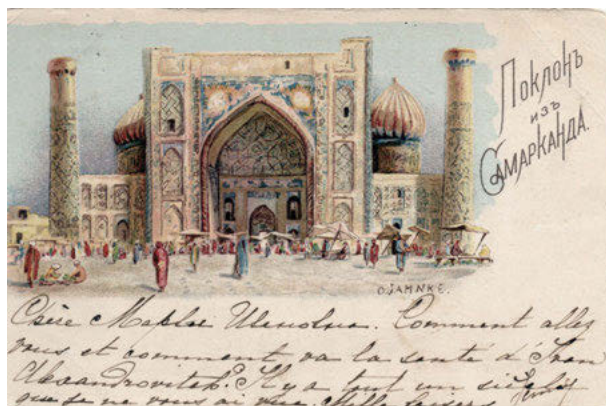 Поклонъ
изъ
Самарканда.
O. JAMNKE.
Comment allez
vous et comment va la santé d'Ivan
Alexandrovitch? Il y a tout un siècle
que je ne vous ai vue. Mille baisers